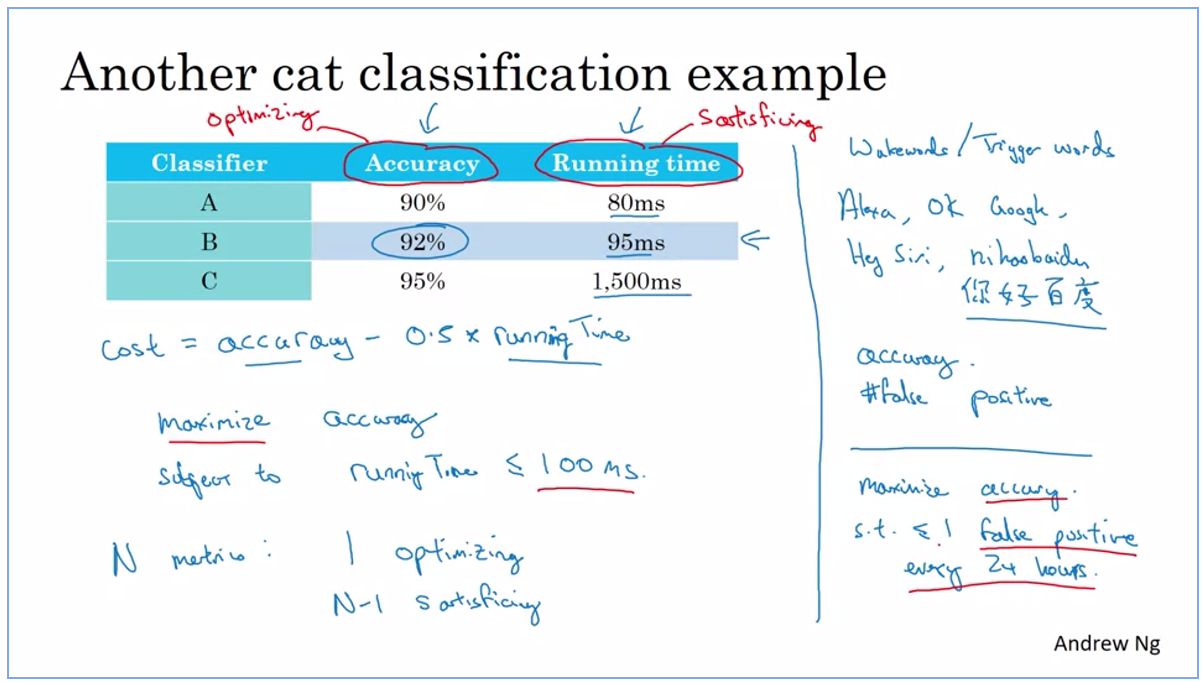 Another cat classification example
optimizing
Satisficing
Classifier Accuracy Running time
A 90% 80ms
B 92% 95ms
C 95% 1,500ms
Cost = accuracy - 0.5 x running Time
maximize accuracy
subject to running Time ≤ 100 ms.
N metrics: 1 optimizing
N-1 satisficing
Wakewords / Trigger words
Alexa, OK Google,
Hey Siri, nihaobaidu
你好百度
accuracy.
#false positive
Maximize accuracy.
s.t. ≤ 1 false positive
every 24 hours.
Andrew Ng